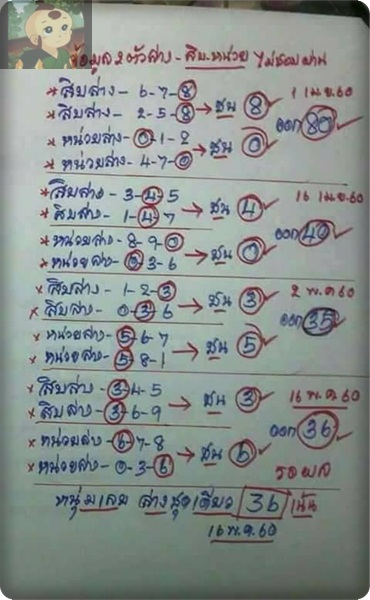 ข้อมูล 2 ตัวล่าง - สิบ-หน่วย ไม่ชอบผ่าน
* สิบล่าง - 6-7-8 → ชน 8 ✓ 1 เม.ย. 60
* สิบล่าง - 2-5-8 ออก 80 ✓
* หน่วยล่าง - 0-1-2 → ชน 0 ✓
* หน่วยล่าง - 4-7-0
* สิบล่าง - 3-4-5 → ชน 4 ✓ 16 เม.ย. 60
* สิบล่าง - 1-4-7
* หน่วยล่าง - 8-9-0 → ชน 0 ✓ ออก 40 ✓
* หน่วยล่าง - 0-3-6
* สิบล่าง - 1-2-3 → ชน 3 ✓ 2 พ.ค. 60
* สิบล่าง - 0-3-6 ออก 35 ✓
* หน่วยล่าง - 5-6-7 → ชน 5 ✓
* หน่วยล่าง - 5-8-1
* สิบล่าง - 3-4-5 → ชน 3 ✓ 16 พ.ค. 60
* สิบล่าง - 3-6-9 ออก 36 ✓
* หน่วยล่าง - 6-7-8 → ชน 6 ✓
* หน่วยล่าง - 0-3-6 รอผล
หนุ่มเลม ล่างชุดเดียว 36 เน้น
16 พ.ค. 60